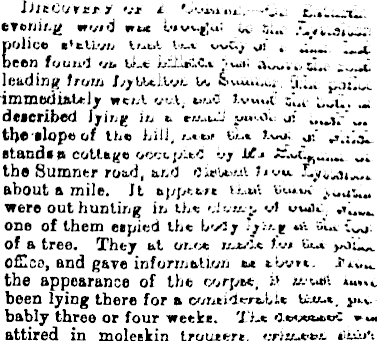 DISCOVERY OF A
evening word was brought to the Lyttelton
police station that the body of a man had
been found on the hillside just above the road
leading from Lyttelton to Sumner. The police
immediately went out, and found the body as
described lying in a small patch of
the slope of the hill, near the foot of which
stands a cottage occupied by Mr
the Sumner road, and distant from Lyttelton
about a mile. It appears that some
were out hunting in the clump of when
one of them espied the body lying at the foot
of a tree. They at once made for the police
office, and gave information as above. From
the appearance of the corpse, it must have
been lying there for a considerable time, pro-
bably three or four weeks. The deceased was
attired in moleskin trousers, crimean shirt